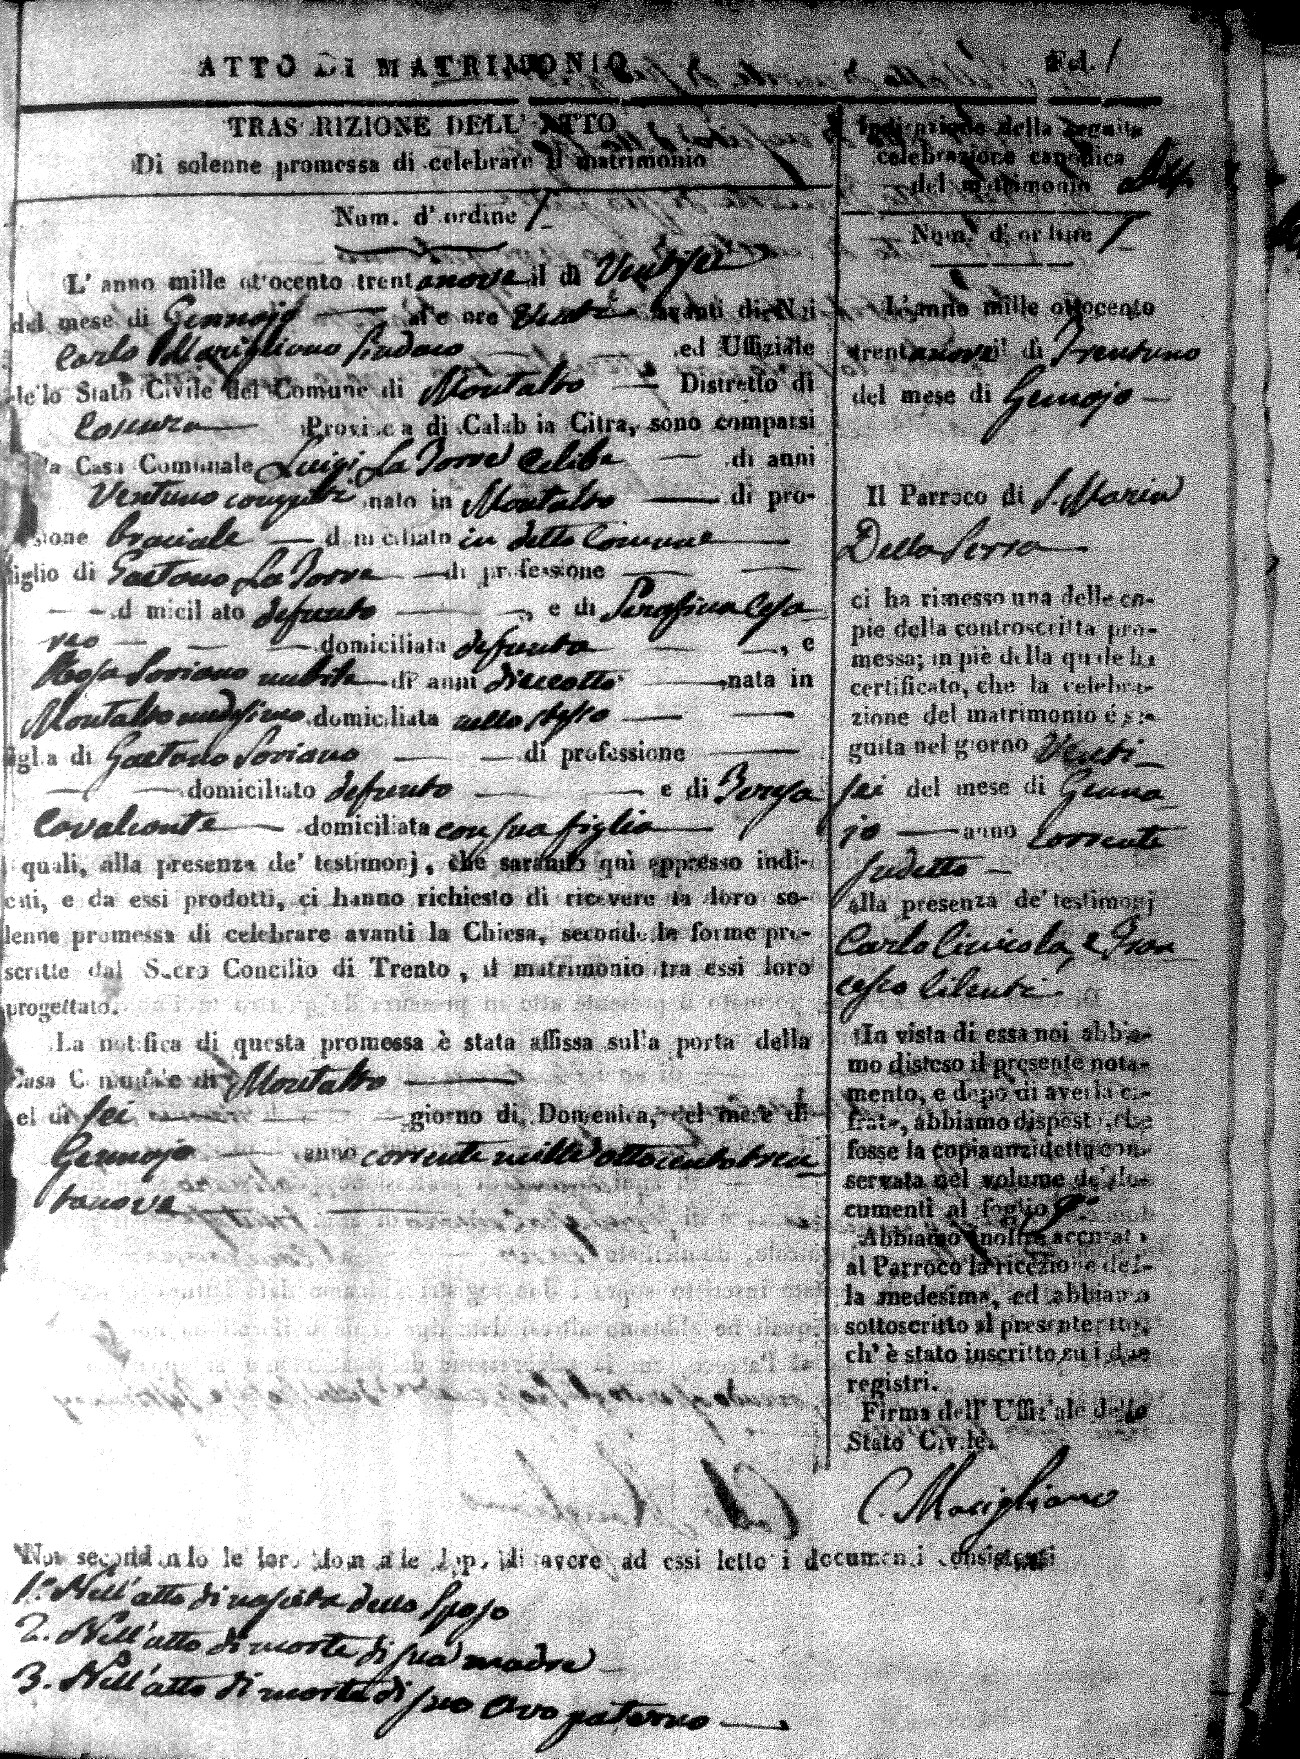 ATTO DI MATRIMONIO
Fol. 1
TRASCRIZIONE DELL' ATTO
Di solenne promessa di celebrare il matrimonio
Num. d' ordine 1
L' anno mille ottocento trentanove il dì Ventisei
del mese di Gennajo alle ore Venti avanti di Noi
Carlo Marigliano Sindaco ed Uffiziale
dello Stato Civile del Comune di Montalto Distretto di
Cosenza Provincia di Calabria Citra, sono comparsi
nella Casa Comunale Luigi La Torre Celibe di anni
Ventuno compiti nato in Montalto di pro-
fessione braciale domiciliato in detto Comune
figlio di Gaetano La Torre di professione
domicilato defunto , e di Serafina Cesa
reo domiciliata defunta , e
Rosa Soriano nubile di anni dieceotto nata in
Montalto medesimo domiciliata nello stesso
figlia di Gaetano Soriano di professione
domiciliato defunto e di Teresa
Cavalcante domiciliata con sua figlia
i quali, alla presenza de' testimonj, che saranno quì appresso indi-
cati, e da essi prodotti, ci hanno richiesto di ricevere la loro so-
lenne promessa di celebrare avanti la Chiesa, secondo le forme pre-
scritte dal Sacro Concilio di Trento, il matrimonio tra essi loro
progettato.
La notifica di questa promessa è stata affissa sulla porta della
Casa Comunale di Montalto
nel dì sei giorno di Domenica, del mese di
Gennajo anno corrente mille ottocento tren
tanove
Indicazione della seguita
celebrazione canonica
del matrimonio
Num. d' ordine 1
L' anno mille ottocento
trentanove il dì Trentuno
del mese di Gennajo
Il Parroco di S. Maria
Della Serra
ci ha rimesso una delle co-
pie della controscritta pro-
messa; in piè della quale ha
certificato, che la celebra-
zione del matrimonio é se-
guita nel giorno Venti
sei del mese di Genna
jo anno corrente
sudetto
alla presenza de' testimonj
Carlo Civicola, e Fran
cesco Cilenti
In vista di essa noi abbia-
mo disteso il presente nota-
mento, e dopo di averla ci-
frata, abbiamo disposto, che
fosse la copia anzidetta con-
servata nel volume de' do-
cumenti al foglio
Abbiamo inoltre accusato
al Parroco la ricezione del-
la medesima, ed abbiamo
sottoscritto il presente atto,
ch' è stato inscritto su i due
registri.
Firma dell' Uffiziale dello
Stato Civile.
C. Marigliano
Noi secondando le loro domande dopo di avere ad essi letto i documenti consistenti
1.º Nell' atto di nascita dello Sposo
2. Nell' atto di morte di sua madre
3. Nell' atto di morte di suo Avo paterno